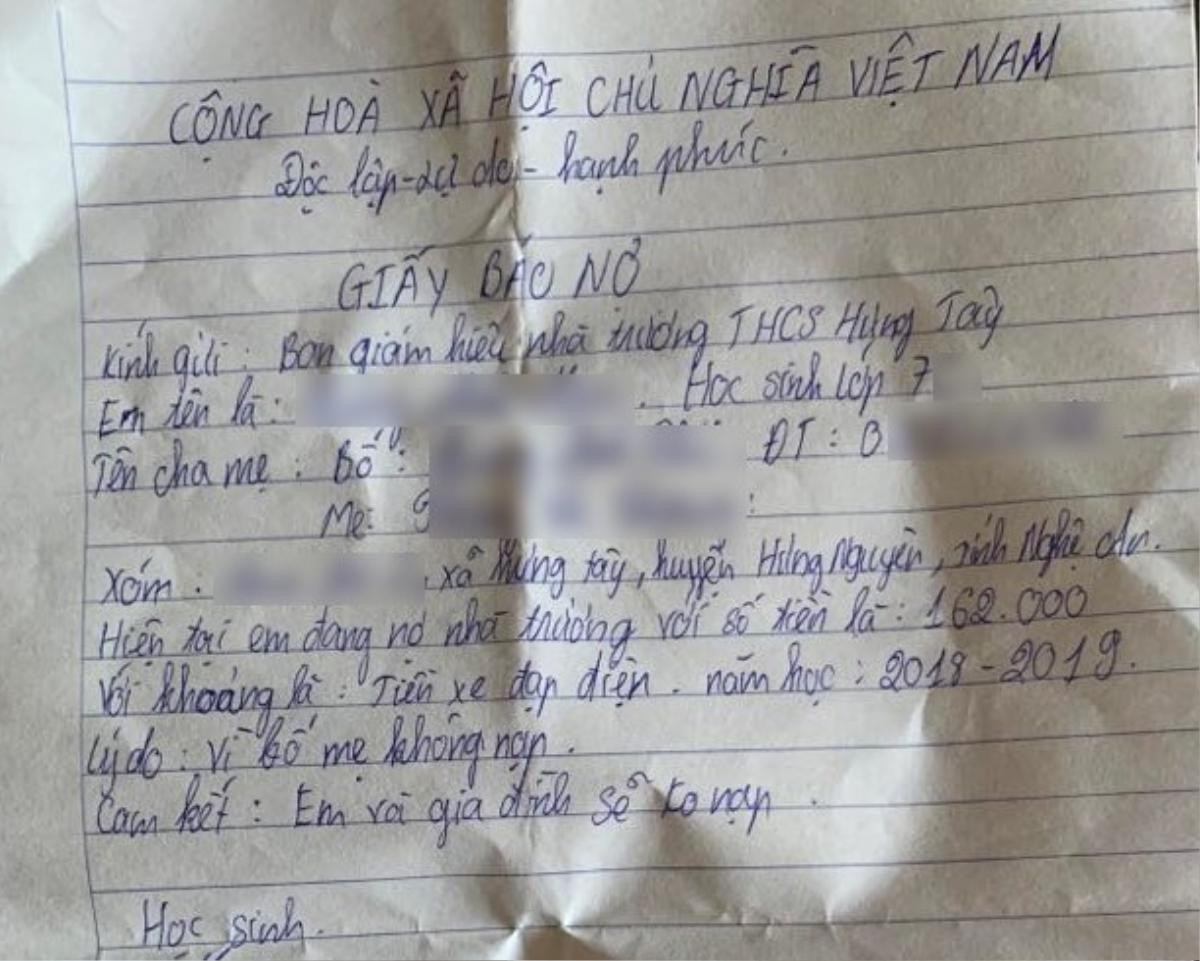 CỘNG HOÀ XÃ HỘI CHỦ NGHĨA VIỆT NAM
Độc lập - tự do - hạnh phúc.
GIẤY BÁO NỢ
Kính gửi : Ban giám hiệu nhà trường THCS Hưng Tây
Em tên là : . Học sinh lớp 7
Tên cha mẹ : Bố : ĐT : 0
Mẹ : :
Xóm . , xã Hưng tây, huyện Hưng Nguyên, tỉnh Nghệ An.
Hiện tại em đang nợ nhà trường với số tiền là : 162.000
Với khoảng là : Tiền xe đạp điện . năm học : 2018 - 2019.
Lý do : Vì bố mẹ không nạp .
Cam kết : Em và gia đình sẽ ko nạp .
Học sinh .